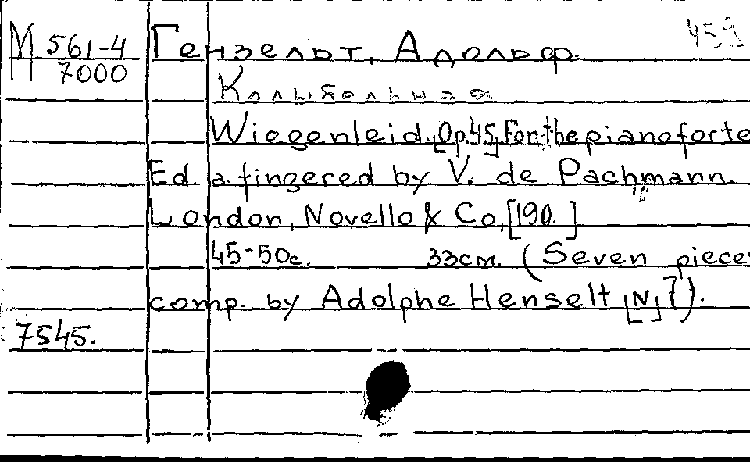 М 561-4 Гензельт, Адольф. 459
7000
Колыбельная
Wiegenleid. [Op.45] For the pianoforte
Ed. a. fingered by V. de Pachmann.
London, Novello & Co, [190. ]
45-50c. 33cm. (Seven piece
comp. by Adolphe Henselt [N] 7).
7545.